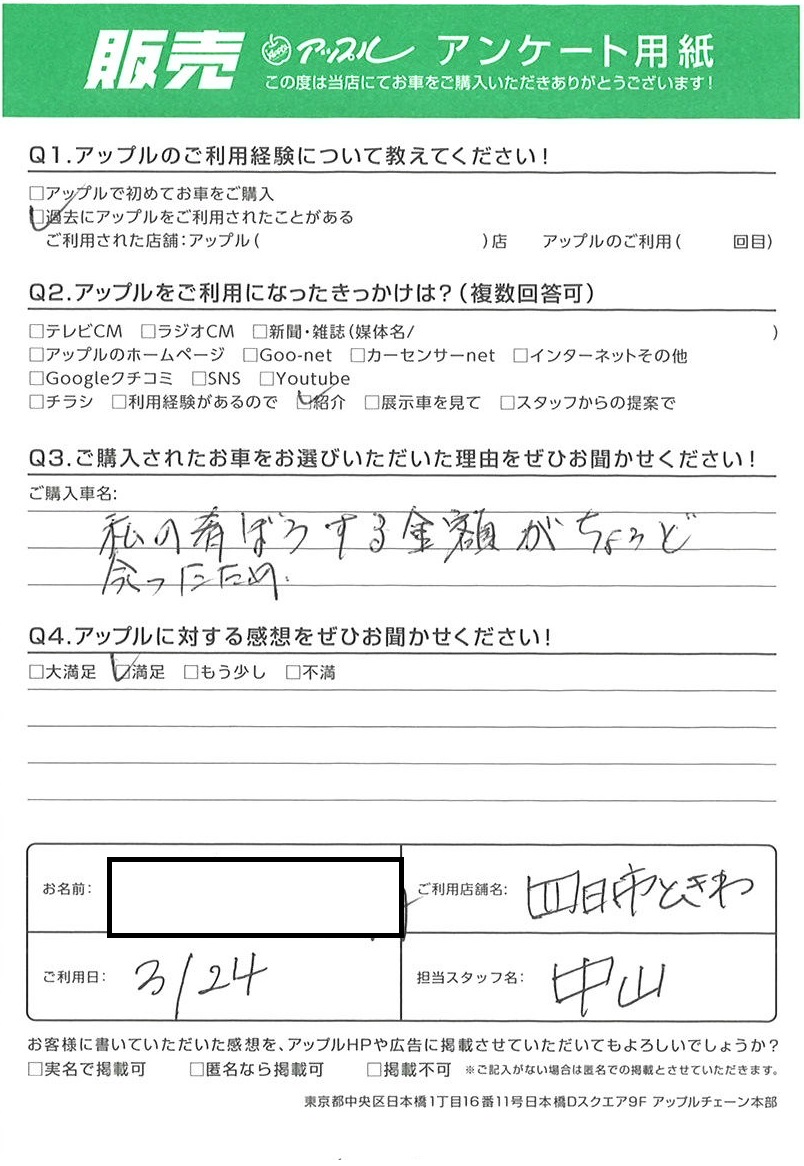 販売 アップル アンケート用紙
この度は当店にてお車をご購入いただきありがとうございます!
Q1.アップルのご利用経験について教えてください!
□アップルで初めてお車をご購入
□過去にアップルをご利用されたことがある
ご利用された店舗:アップル( )店 アップルのご利用( 回目)
Q2.アップルをご利用になったきっかけは?(複数回答可)
□テレビCM □ラジオCM □新聞・雑誌(媒体名/ )
□アップルのホームページ □Goo-net □カーセンサーnet □インターネットその他
□Googleクチコミ □SNS □Youtube
□チラシ □利用経験があるので □紹介 □展示車を見て □スタッフからの提案で
Q3.ご購入されたお車をお選びいただいた理由をぜひお聞かせください!
ご購入車名:
私の希ぼうする金額がちょうど
合ったため.
Q4.アップルに対する感想をぜひお聞かせください!
□大満足 □満足 □もう少し □不満
お名前: ご利用店舗名: 四日市ときわ
ご利用日: 3/24 担当スタッフ名: 中山
お客様に書いていただいた感想を、アップルHPや広告に掲載させていただいてもよろしいでしょうか?
□実名で掲載可 □匿名なら掲載可 □掲載不可 ※ご記入がない場合は匿名での掲載とさせていただきます。
東京都中央区日本橋1丁目16番11号日本橋Dスクエア9F アップルチェーン本部